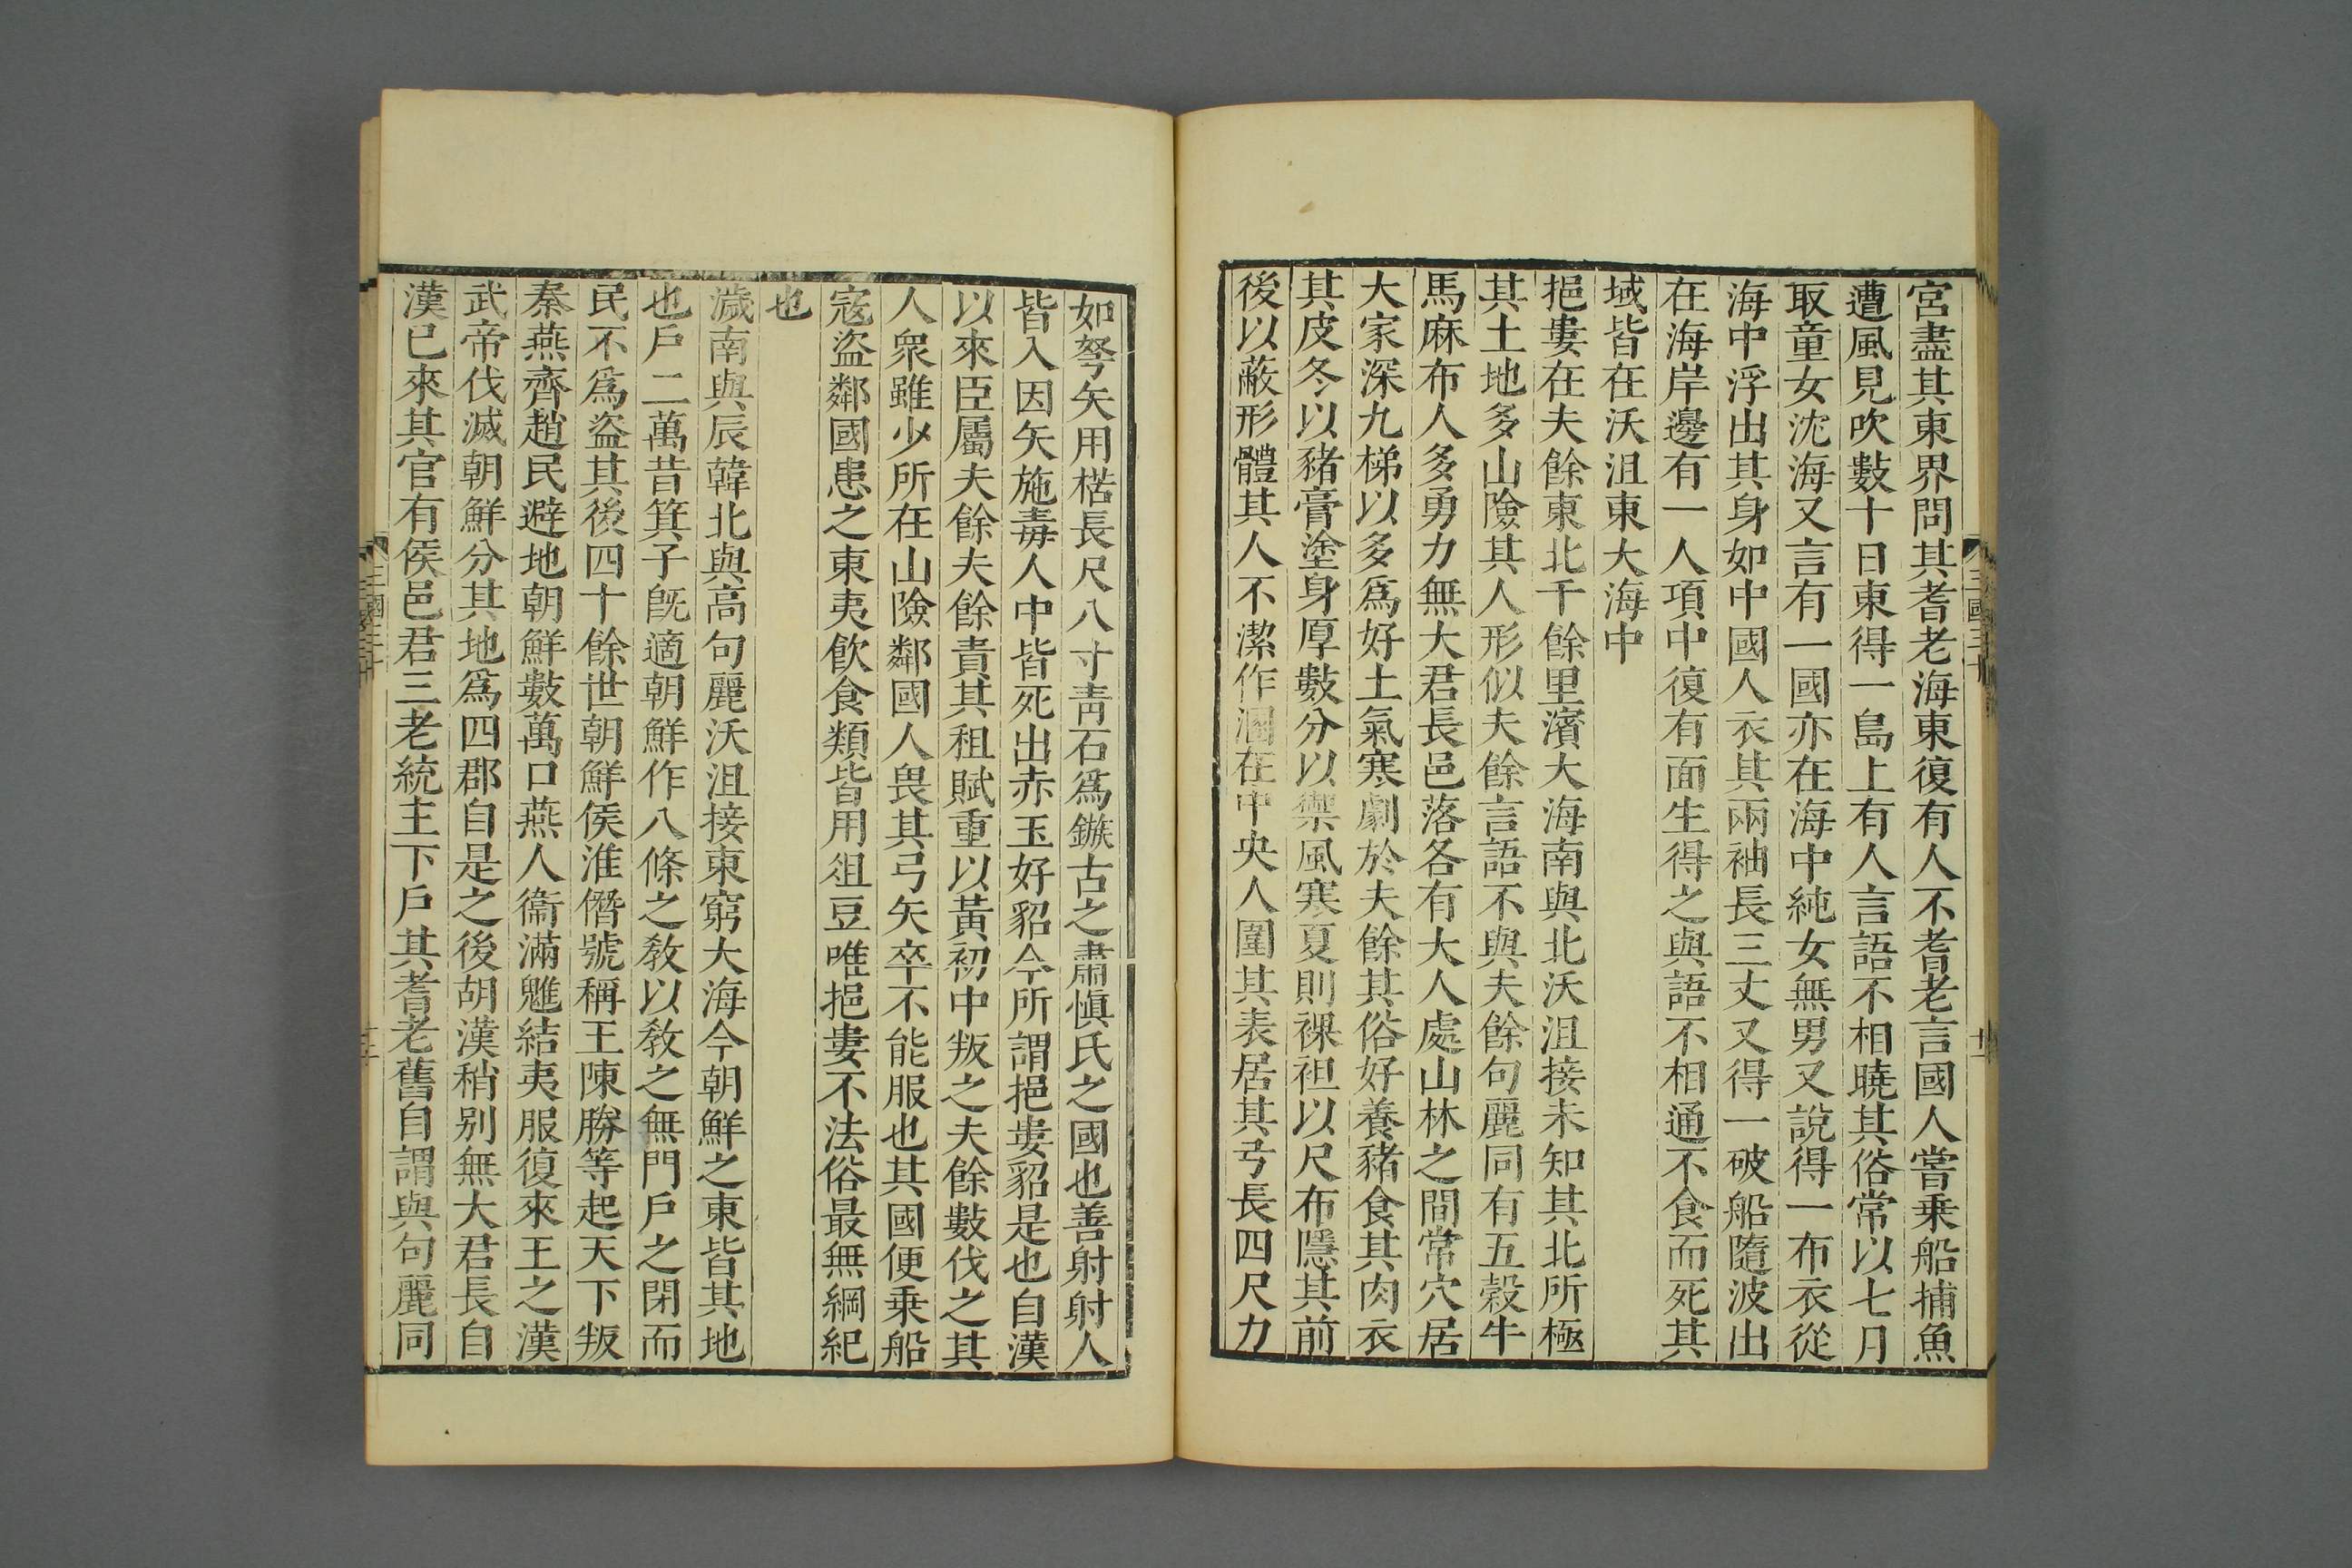 宮盡其東界問其耆老海東復有人不耆老言國人嘗乗船捕魚
遭風見吹數十日東得一島上有人言語不相曉其俗常以七月
取童女沈海又言有一國亦在海中純女無男又說得一布衣從
海中浮出其身如中國人衣其兩袖長三丈又得一破船隨波出
在海岸邊有一人項中復有面生得之與語不相通不食而死其
域皆在沃沮東大海中
挹婁在夫餘東北千餘里濱大海南與北沃沮接未知其北所極
其土地多山險其人形似夫餘言語不與夫餘句麗同有五穀牛
馬麻布人多勇力無大君長邑落各有大人處山林之間常穴居
大家深九梯以多爲好土氣寒劇於夫餘其俗好養豬食其肉衣
其皮冬以豬膏塗身厚數分以禦風寒夏則裸袒以尺布隱其前
後以蔽形體其人不潔作溷在中央人圍其表居其弓長四尺力
如弩矢用楛長尺八寸靑石爲鏃古之肅愼氏之國也善射射人
皆入因矢施毒人中皆死出赤玉好貂今所謂挹婁貂是也自漢
以來臣屬夫餘夫餘責其租賦重以黃初中叛之夫餘數伐之其
人衆雖少所在山險鄰國人畏其弓矢卒不能服也其國便乗船
寇盜鄰國患之東夷飮食類皆用俎豆唯挹婁不法俗最無綱紀
也
濊南與辰韓北與高句麗沃沮接東窮大海今朝鮮之東皆其地
也戶二萬昔箕子旣適朝鮮作八條之敎以敎之無門戶之閉而
民不爲盜其後四十餘世朝鮮侯淮僭號稱王陳勝等起天下叛
秦燕齊趙民避地朝鮮數萬口燕人衞滿魋結夷服復來王之漢
武帝伐滅朝鮮分其地爲四郡自是之後胡漢稍别無大君長自
漢已來其官有侯邑君三老統主下戶其耆老舊自謂與句麗同